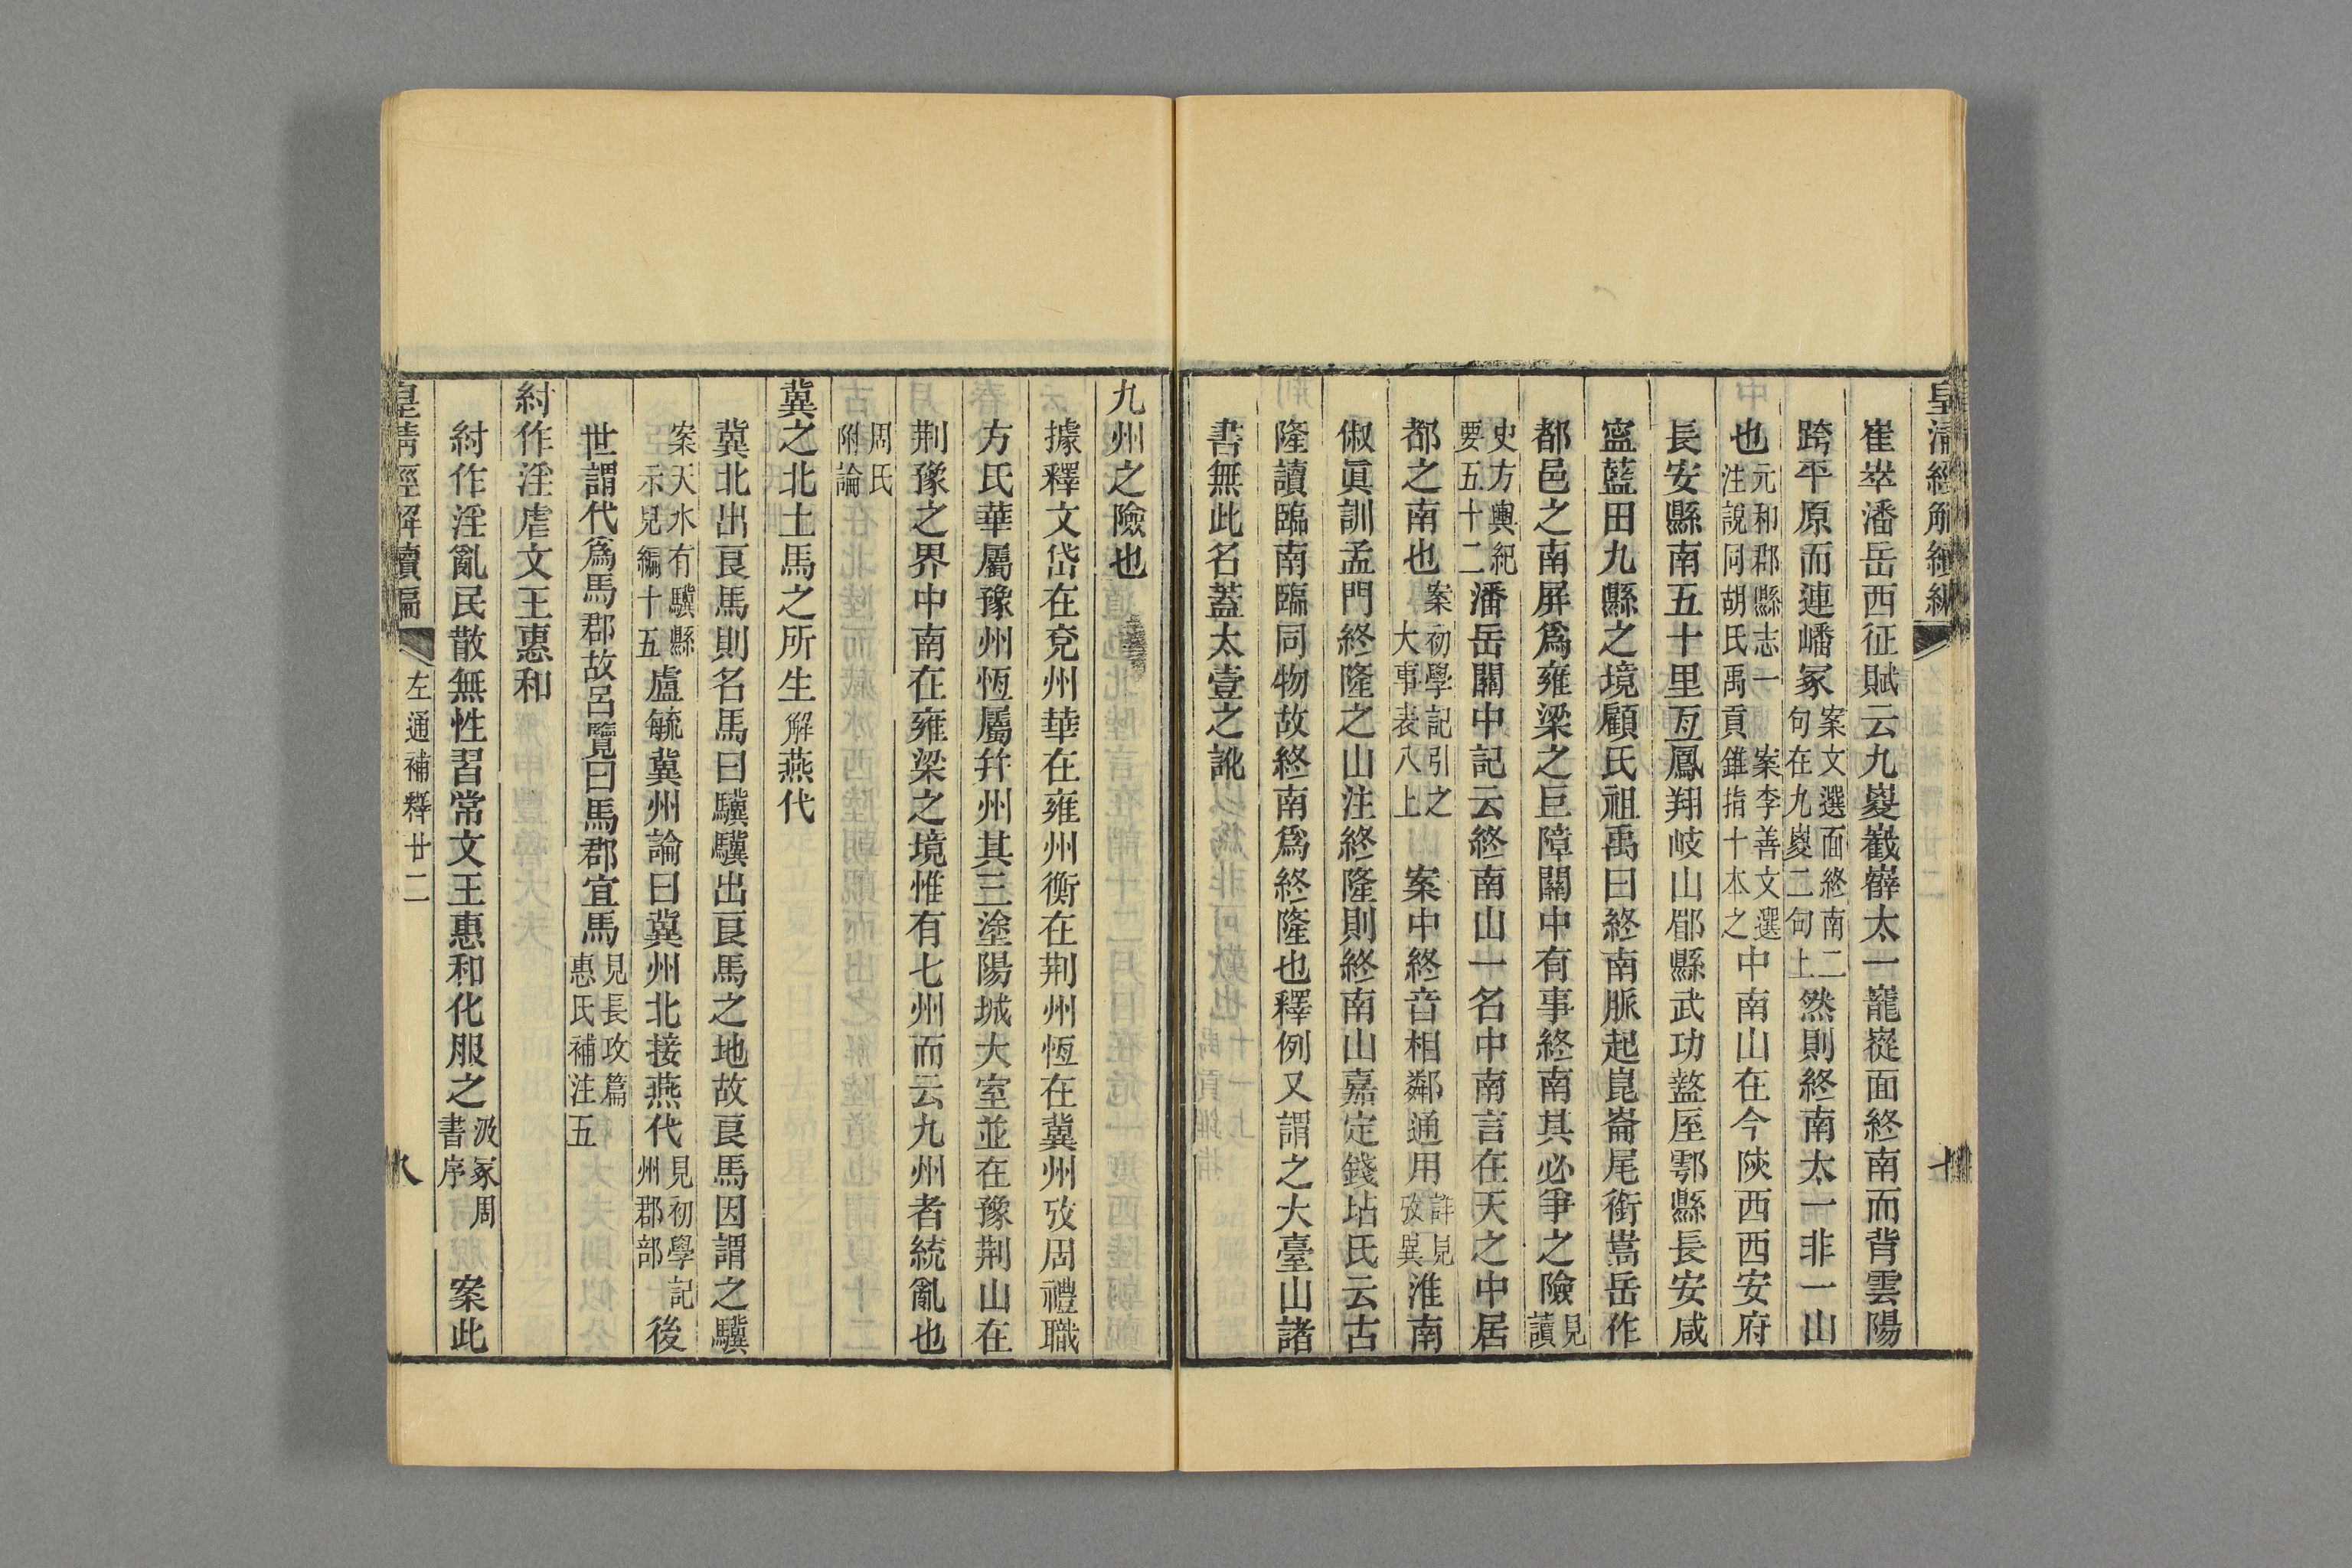 皇清經解續編
七
崔崒潘岳西征賦云九嵏嶻嶭太一巃嵸面終南而背雲陽
跨平原而連嶓冢案文選面終南二句在九嵏二句上然則終南太一非一山
也元和郡縣志一 案李善文選注說同胡氏禹貢錐指十本之中南山在今陝西西安府
長安縣南五十里亙鳳翔岐山郿縣武功盩厔鄠縣長安咸
寧藍田九縣之境顧氏祖禹曰終南脈起崑崙尾銜嵩岳作
都邑之南屏爲雍梁之巨障關中有事終南其必爭之險見讀
史方輿紀要五十二潘岳關中記云終南山一名中南言在天之中居
都之南也案初學記引之大事表八上 案中終音相鄰通用詳見攷異淮南
俶眞訓孟門終隆之山注終隆則終南山嘉定錢坫氏云古
隆讀臨南臨同物故終南爲終隆也釋例又謂之大臺山諸
書無此名蓋太壹之訛
九州之險也
據釋文岱在兗州華在雍州衡在荆州恆在冀州攷周禮職
方氏華屬豫州恆屬幷州其三塗陽城大室並在豫荆山在
荆豫之界中南在雍梁之境惟有七州而云九州者統亂也
周氏附論
冀之北土馬之所生解燕代
冀北出良馬則名馬曰驥驥出良馬之地故良馬因謂之驥
案天水有驥縣示見編十五盧毓冀州論曰冀州北接燕代見初學記州郡部後
世謂代爲馬郡故呂覽曰馬郡宜馬見長攻篇惠氏補注五
紂作淫虐文王惠和
紂作淫亂民散無性習常文王惠和化服之汲冢周書序 案此
皇清經解續編
左通補釋廿二
八